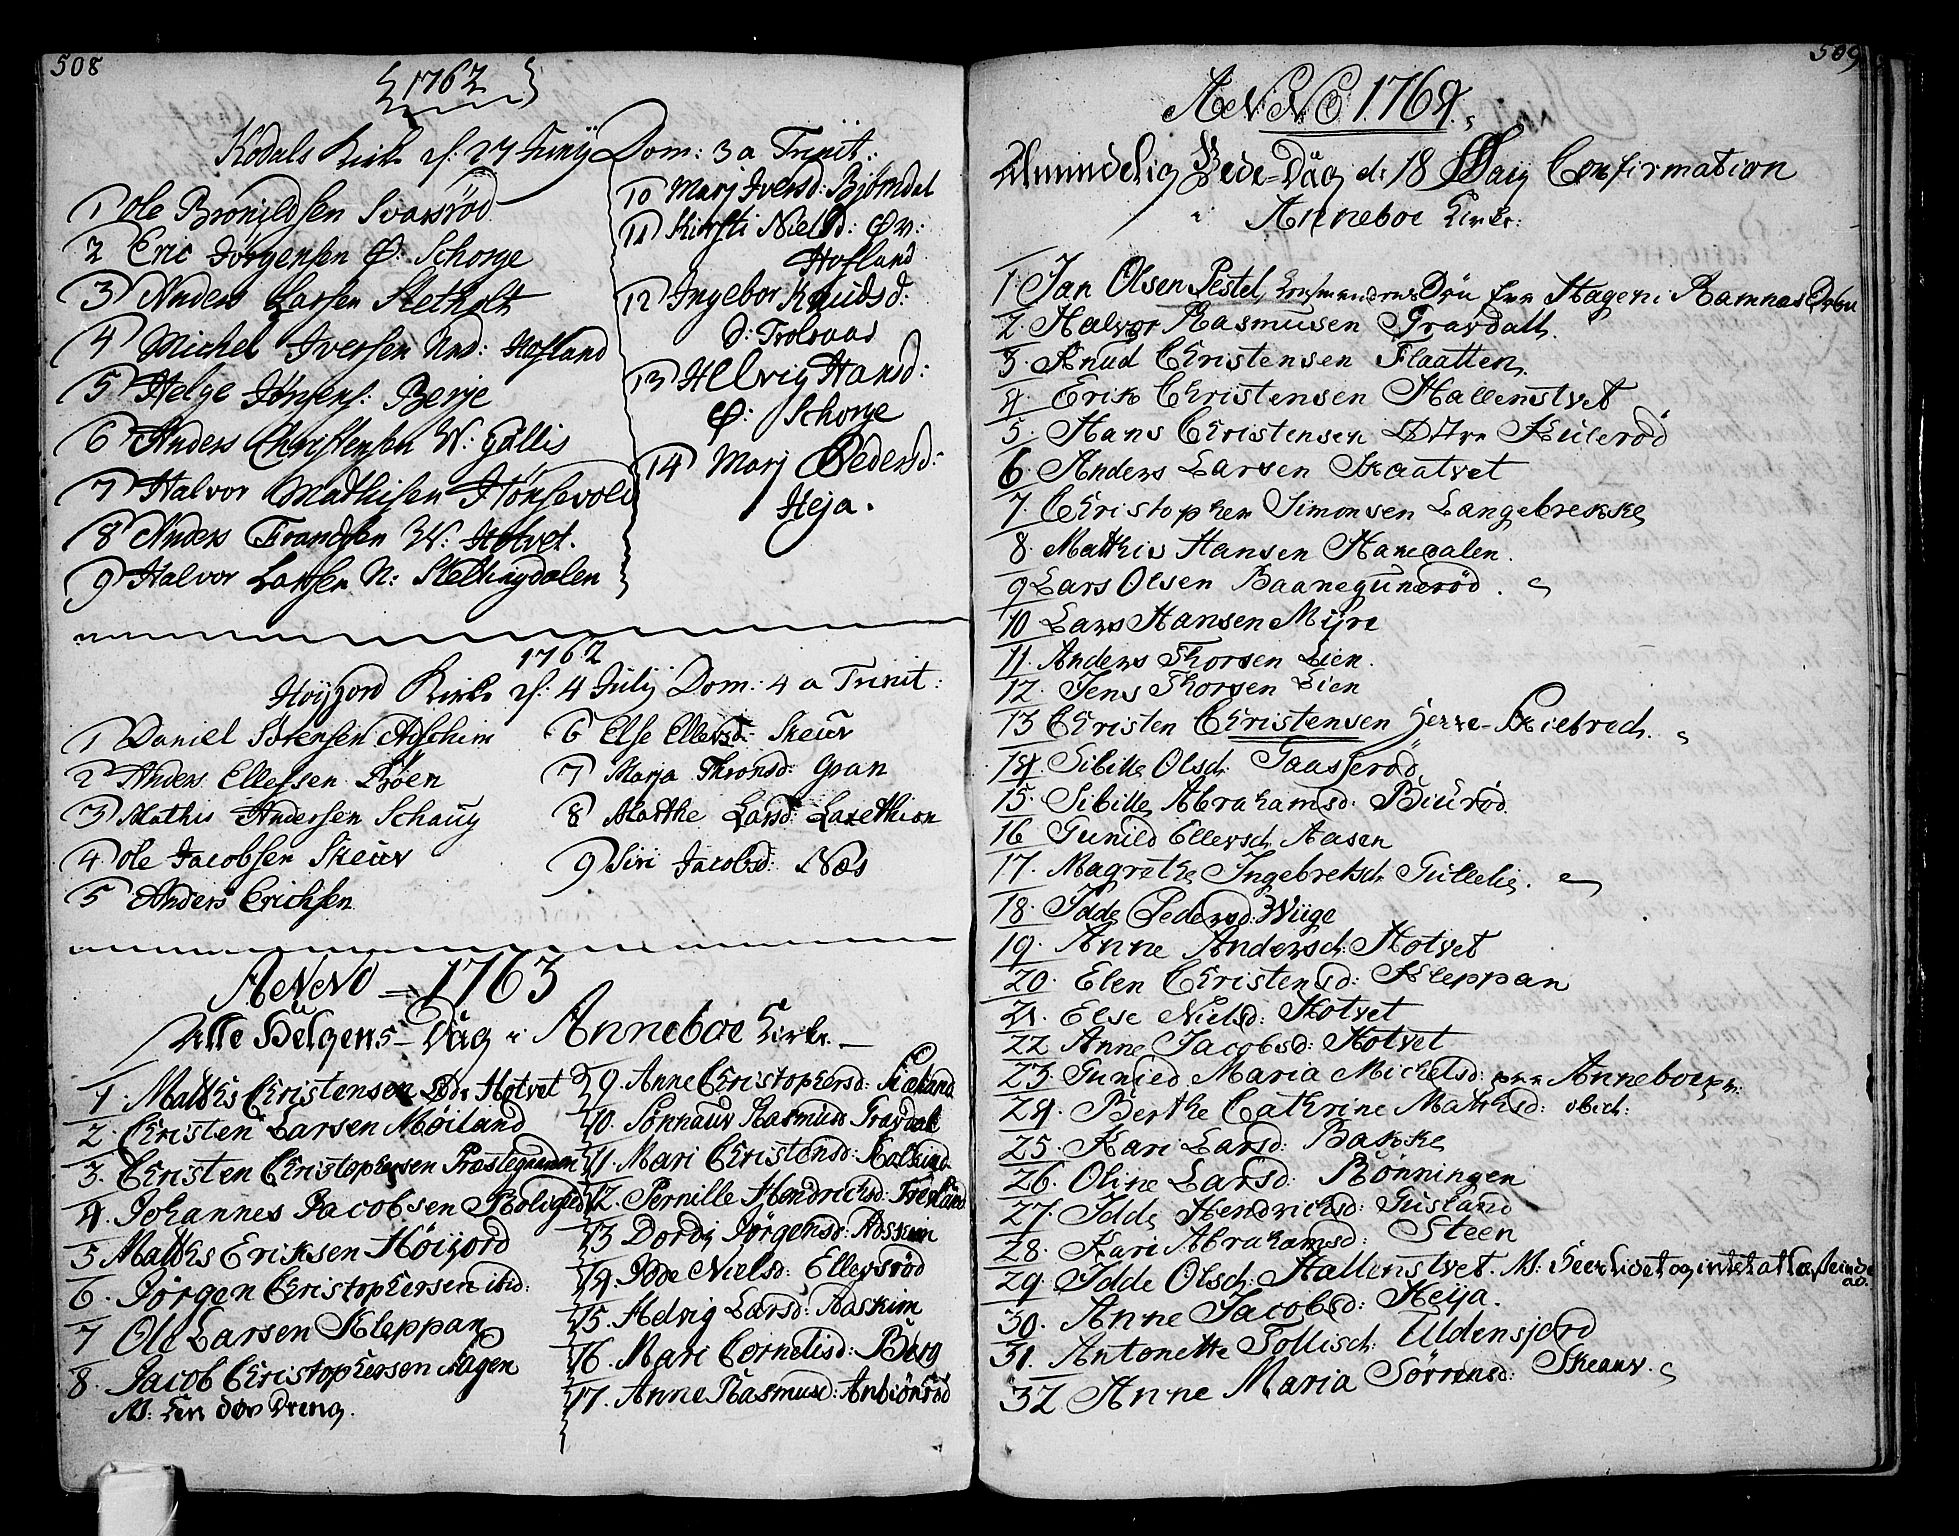 508
1762
Kodals Kirke d: 27 Junij Dom: 3 a Trinit:
1 Ole Bronildsen Svarsrød
2 Eric Jørgensen Ø: Schorge
3 Anders Larsen Stetholt
4 Michel Iversen Nnd: Hofland
5 Helge Jönsens: Berje
6 Anders Christensen W: Gallis
7 Halvor Mathisen Hönsevold
8 Anders Frandsen W: Hotvet.
9 Halvor Larsen N: Stellingdalen
10 Marj Iversd: Bjömdal
11 Kirsti Nielsd: Øv:
Hofland
12 Ingebor Knudsd:
Ø: Trolsaas
13 Helvig Hansd:
Ø: Schorge
14 Marj Pedersd:
Heja.
1762
Höijjord Kirke d: 4 Julij Dom: 4 a Trinit:
1 Daniel Sörensen Aschim
2 Anders Ellefsen Böen
3 Mathis Andersen Schaug
4 Ole Jacobsen Skeuv
5 Anders Erichsen
6 Else Ellevsd: Skeuv
7 Marja Thronsd: Gran
8 Marthe Larsd: Laxethion
9 Siri Jacobsd: Næs
ANNO - 1763
Alle Helgens-Dag i Anneboe Kirke.
1. Mathis Christensen Ødr Hotvet
2. Christen Larsen Möiland
3. Christen Christophersen Præstegaarden
4. Johannes Jacobsen Rolighed
5 Mathis Eriksen Höijord
6. Jörgen Christophersen ibid:
7 Ole Larsen Kleppan
8. Jacob Christophersen Hagen
NB: Een döv Dreng.
9. Anne Christophersd:
10. Sønnauv Rasmusd Gravdal
11. Mari Christensd:
12. Pernille Hendrichsd:
13 Dordi Jörgensd: Aaskim
14. Idde Nielsd: Ellevsröd
15. Helvig Larsd: Aaskim
16. Mari Cornelisd: Berg
17. Anne Rasmusd: Anbiönröd
509
ANNO 1764.
Almindelig Bede-Dag d: 18 Maij Confirmation
i Anneboe Kirke:
1. Jan Olsen Pestel, Søn fra Hagen i Ramnæs
2. Halvor Rasmusen Gravdall.
3. Knud Christensen Flaatten
4. Erik Christensen Hallenstvet
5. Hans Christensen Østre Kulerød
6. Anders Larsen Skaatvet
7. Christopher Simonsen Langebrekke
8. Mathis Hansen Hanedalen.
9 Lars Olsen Baanegunerød.
10 Lars Hansen Mijre
11. Anders Thorsen Lien.
12. Jens Thorsen Lien
13 Christen Christensen
14. Sibille Olsd: Gaaserød
15. Sibille Abrahamsd: Biurød
16 Gunild Ellevsd: Aasen
17. Magrethe Ingebretsd: Gullelie.
18. Idde Pedersd: Wiige
19. Anne Andersd: Hotvet
20. Elen Christensd: Kleppan
21. Else Nielsd: Hotvet
22 Anne Jacobsd: Hotvet
23. Gunild Maria Michelsd: Anneboe
24. Berthe Cathrine Mathisd: ibid:
25. Kari Larsd: Bakke
26. Oline Larsd: Rönningen
27. Idde Hendrichsd: Gusland
28. Kari Abrahamsd: Steen
29. Idde Olsd: Hallenstvet. NB:
30. Anne Jacobsd: Heija.
31. Antonette Tollisd: Uldensjord
32 Anne Maria Sørrensd: Skeauv.